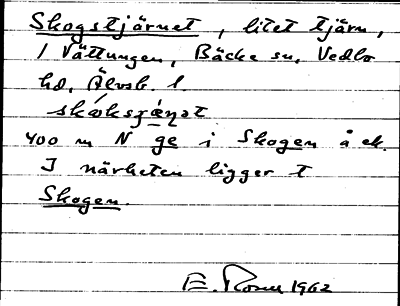 Skogstjärnet, litet tjärn,
i Vättungen, Bäcke sn, Vedbo
hd, Älvsb. l.
400 m N ge i Skogen å ek.
I närheten ligger t
Skogen.
E. 1962